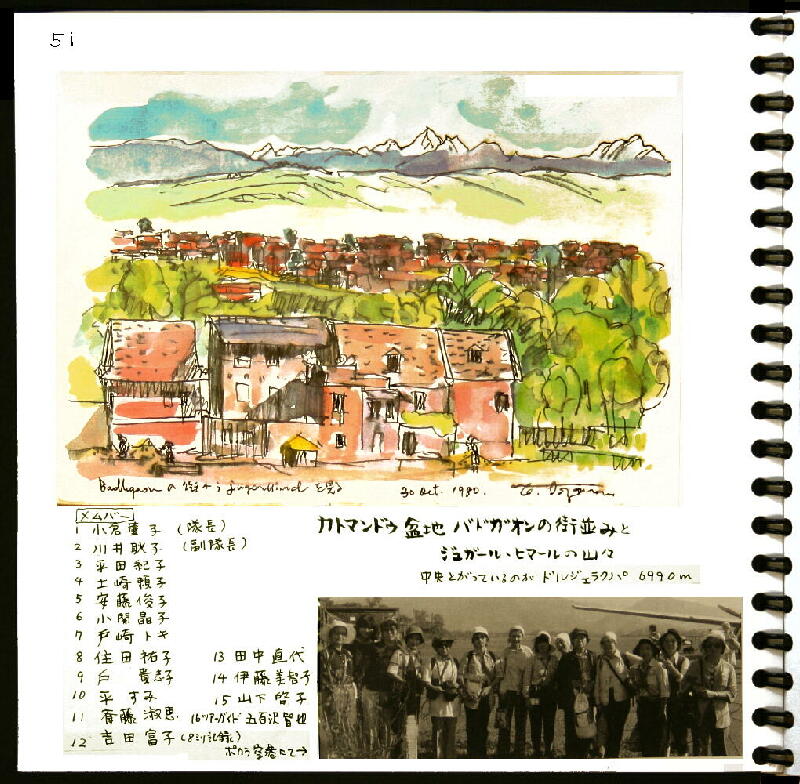 51
Badhgaon の街から Jugal Himal を見る 30 Oct. 1980.
メムバー
1 小倉董子 (隊長)
2 川井耿子 (副隊長)
3 平田紀子
4 土崎頼子
5 安藤俊子
6 小関晶子
7 戸崎トキ
8 住田祐子
9 白 貴志子
10 平 すみ
11 斎藤淑恵
12 吉田富子 (8ミリ記録)
13 田中直代
14 伊藤美智子
15 山下啓子
16 ツアーガイド 五百沢智也
ポカラ空港にて→
カトマンドゥ盆地 バドガオンの街並みと
ジュガール・ヒマールの山々
中央とがっているのが ドルジェラクパ 6990m